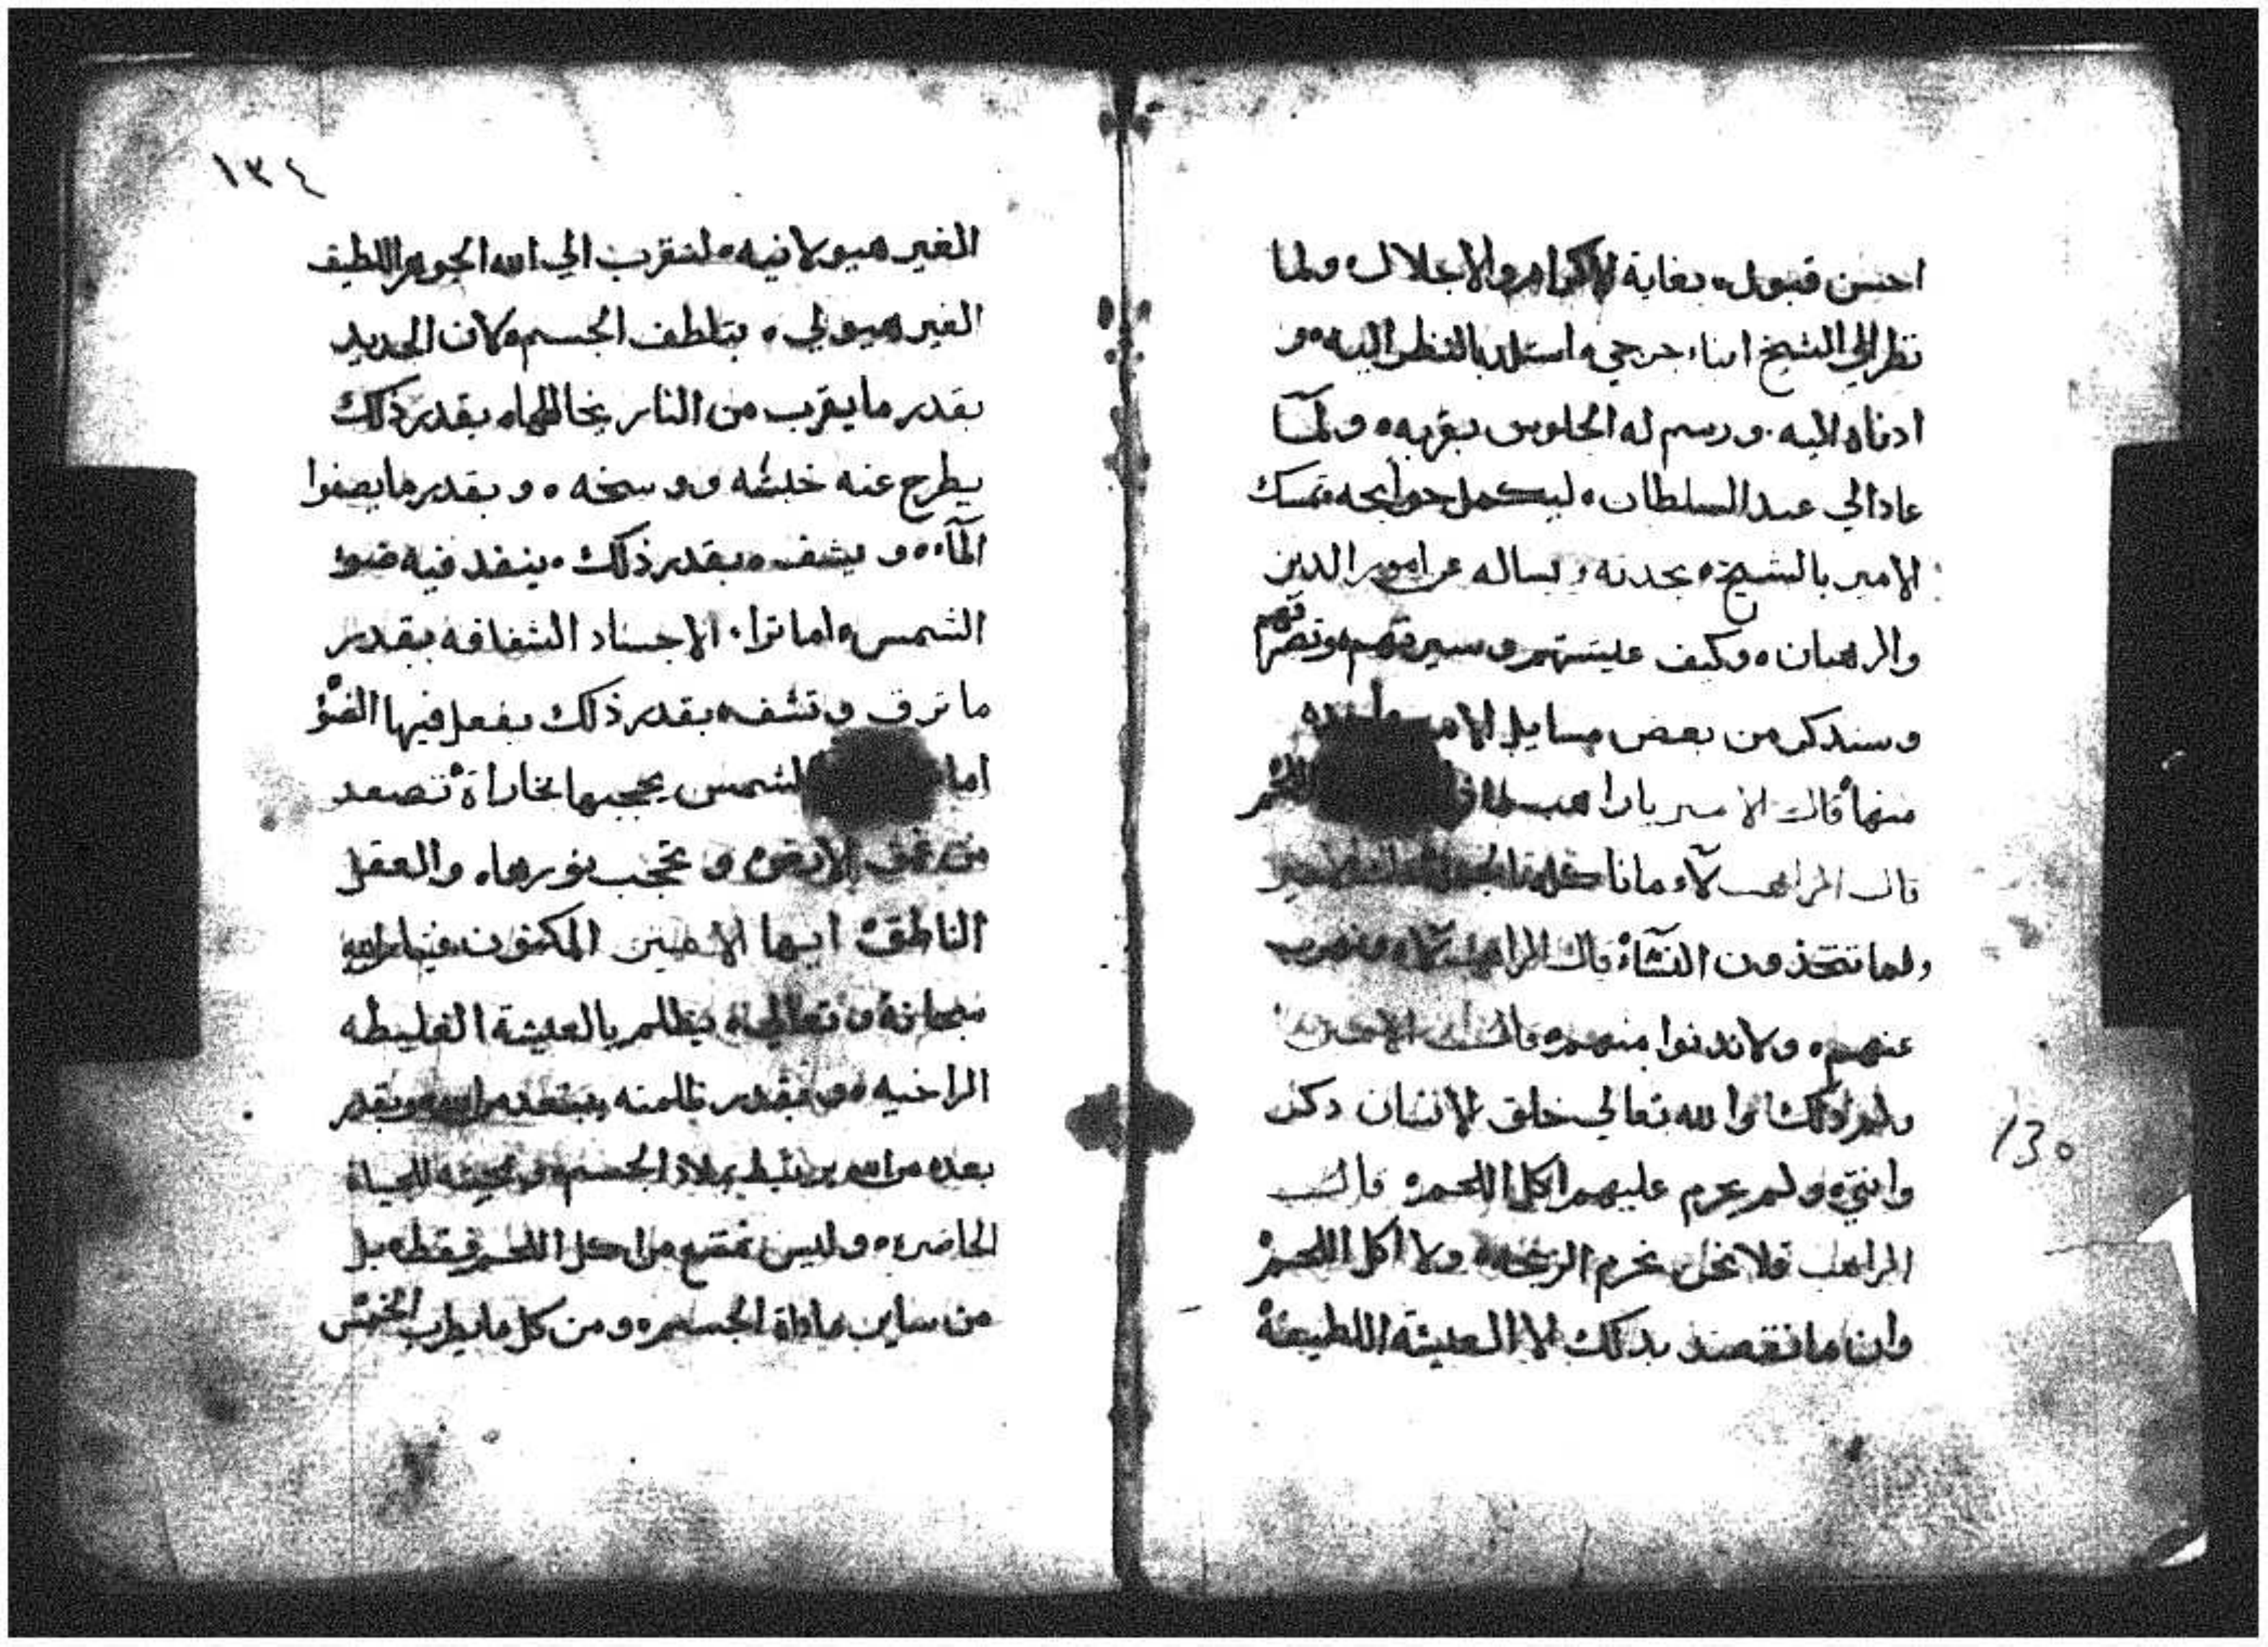 احسن قبول، بغاية الاكرام والاجلال ولما
نظر الي الشيخ ابناء جرجي استلد بالنظر اليه و
ادناه اليه. ورسم له الجلوس بقربه ولمآ
عاد الي عبد السلطان ليكمل حوايجه تمسك
الامير بالشيخ يحدته ويساله عن امور الدين
والرهبان وكيف عيشتهم وسيرتهم وتصرفهم
وسندكر من بعض مسايل الامير
منها قال الامير يا راهب
قال الراهب لآ، ما ناكل
ولما تتخذون النسآء قال الراهب لآ
عنهم ولا ندنوا منهم قال الامير
ولم ذلك والله تعالي خلق الانسان دكر
وانتي ولم يحرم عليهم اكل اللحم قال
الراهب فلا نحن نحرم الزيجه ولا اكل اللحم
وان ما نقصد بدلك الا العيشة اللطيفة
١٣٠
١٣٤
الغير هيولانيه، لنتقرب الي الله الجوهر اللطيف
الغير هيولي. بتلطف الجسم لان الحديد
بقدر ما يقرب من النار يخالطها، بقدر ذلك
يطرح عنه خبثه ووسخه، وبقدر ما يصفوا
المآء، و يشف، بقدر ذلك، ينفد فيه ضو
الشمس، اما ترا، الاجساد الشفافه بقدر
ما ترق وتشف، بقدر ذلك يفعل فيها الضؤ
اما الشمس يحجبها بخاراة تصعد
من الارض و تحجب نورها. والعقل
الناطق ايها الامير المكنون فينا من الله
سبحانه وتعالي، يظلم بالعيشة الغليظه
الراخيه، وبقدر ظلمته يبتعد من الله وبقدر
بعده من الله يرتبط بملاد الجسم ومحبته للحياة
الحاضره، وليس نمتنع من اكل اللحم فقط، بل
من ساير ملداة الجسم ومن كل ما يطرب الخمس